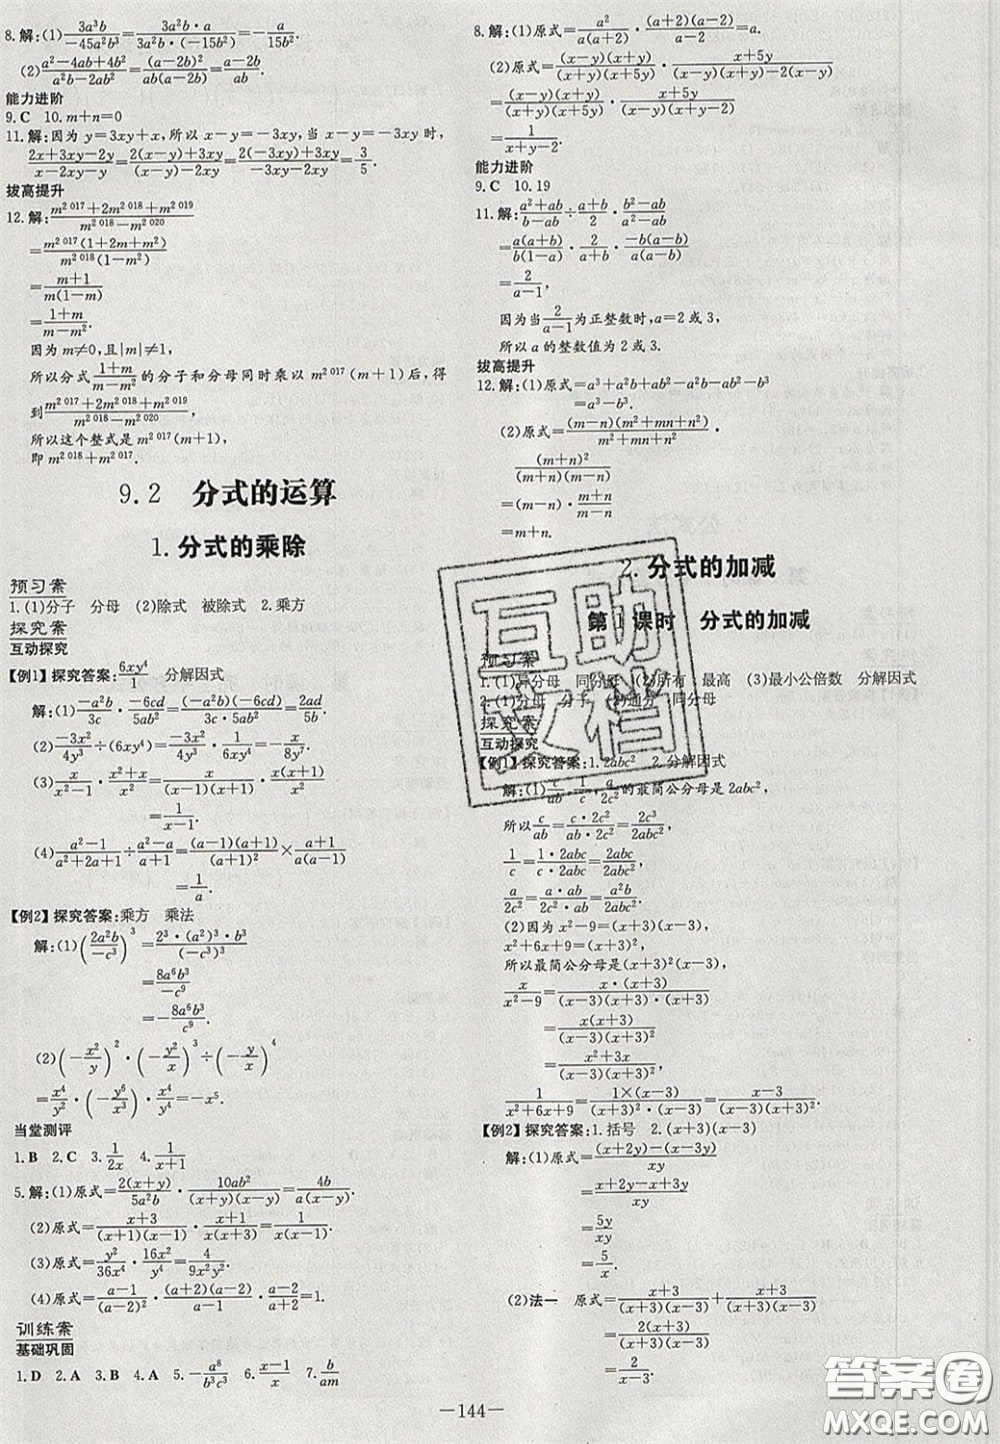 8.解:(1)3a³b/(-45a²b³)=3a²b·a/(3a²b·(-15b²))=-a/(15b²).
(2)(a²-4ab+4b²)/(a²b-2ab²)=(a-2b)²/(ab(a-2b))=(a-2b)/(ab).
能力进阶
9.C 10.m+n=0
11.解:因为y=3xy+x,所以x-y=-3xy,当x-y=-3xy时,
(2x+3xy-2y)/(x-2xy-y)=(2(x-y)+3xy)/((x-y)-2xy)=(2(-3xy)+3xy)/(-3xy-2xy)=3/5.
拔高提升
12.解:(m^2 017+2m^2 018+m^2 019)/(m^2 018-m^2 020)
=m^2 017(1+2m+m²)/(m^2 018(1-m²))
=(m+1)/(m(1-m))
=(1+m)/(m-m²).
因为m≠0,且|m|≠1,
所以分式(1+m)/(m-m²)的分子和分母同时乘以m^2 017(m+1)后,得
到(m^2 017+2m^2 018+m^2 019)/(m^2 018-m^2 020),
所以这个整式是m^2 017(m+1),
即m^2 018+m^2 017.
9.2 分式的运算
1.分式的乘除
预习案
1.(1)分子 分母 (2)除式 被除式 2.乘方
探究案
互动探究
【例1】探究答案:6xy⁴/1 分解因式
解:(1)(-a²b)/3c·(-6cd)/5ab²=((-a²b)·(-6cd))/(3c·5ab²)=2ad/5b.
(2)(-3x²)/4y³÷(6xy⁴)=(-3x²)/4y³·1/(6xy⁴)=-x/(8y⁷).
(3)x/(x²-1)·(x²+x)/x²=x/((x+1)(x-1))·x(x+1)/x²
=1/(x-1).
(4)(a²-1)/(a²+2a+1)÷(a²-a)/(a+1)=((a-1)(a+1))/(a+1)²×(a+1)/(a(a-1))
=1/a.
【例2】探究答案:乘方 乘法
解:(1)(2a²b/(-c³))³=2³·(a²)³·b³/(-c³)³
=8a⁶b³/(-c⁹)
=-8a⁶b³/c⁹.
(2)(-x²/y)²·(-y²/x)³÷(-y/x)⁴
=x⁴/y²·(-y⁶/x³)·x⁴/y⁴=-x⁵.
当堂测评
1.B 2.C 3.1/2x 4.1/(x+1)
5.解:(1)原式=2(x+y)/5a²b·10ab²/((x+y)(x-y))=4b/(a(x-y)).
(2)原式=(x+3)/((x+1)(x-1))·(x+1)/(x+3)=1/(x-1).
(3)原式=y²/36x⁴·16x²/y⁴=4/(9x²y²).
(4)原式=(a-1)/(a-2)²·((a+2)(a-2))/(a-1)·(a-2)/(a+2)=1.
训练案
基础巩固
1.D 2.A 3.B 4.A 5.-a⁸/(b³c³) 6.(x-1)/x 7.b/am
8.解:(1)原式=a²/(a(a+2))·((a+2)(a-2))/(a-2)=a.
(2)原式=((x-y)(x+y))/((x+y)(x+5y))·(x+5y)/((x-y)(x+y)-2(x-y))
=((x-y)(x+y))/((x+y)(x+5y))·(x+5y)/((x-y)(x+y-2))
=1/(x+y-2).
能力进阶
9.C 10.19
11.解:(a²+ab)/(b-ab)÷(a+b)/2·(b²-ab)/(a²-ab)
=a(a+b)/(b(1-a))·2/(a+b)·(-b(a-b))/(a(a-b))
=2/(a-1),
因为当2/(a-1)为正整数时,a=2或3,
所以a的整数值为2或3.
拔高提升
12.解:(1)原式=a³+a²b+ab²-a²b-ab²-b³
=a³-b³.
(2)原式=((m-n)(m²+mn+n²))/(m²+mn+n²)·
(m+n)²/((m+n)(m-n))
=(m-n)·(m+n)/(m-n)
=m+n.
2.分式的加减
第1课时 分式的加减
预习案
1.(1)异分母 同分母 (2)所有 最高 (3)最小公倍数 分解因式
2.(1)分母 分子 (2)通分 同分母
探究案
互动探究
【例1】探究答案:1.2abc² 2.分解因式
解:(1)c/ab、1/c、a/2c²的最简公分母是2abc²,
所以c/ab=c·2c²/(ab·2c²)=2c³/2abc²,
1/c=1·2abc/(c·2abc)=2abc/2abc²,
a/2c²=a·ab/(2c²·ab)=a²b/2abc².
(2)因为x²-9=(x+3)(x-3),
x²+6x+9=(x+3)²,
所以最简公分母是(x+3)²(x-3),
x/(x²-9)=x·(x+3)/((x-3)(x+3)·(x+3))
=x(x+3)/((x-3)(x+3)²)
=(x²+3x)/((x-3)(x+3)²)
1/(x²+6x+9)=1×(x-3)/((x+3)²·(x-3))=(x-3)/((x+3)²(x-3)).
【例2】探究答案:1.括号 2.(x+3)(x-3)
解:(1)原式=((x+2y)-(x-3y))/xy
=(x+2y-x+3y)/xy
=5y/xy
=5/x.
(2)法一 原式=(x+3)/((x+3)(x-3))+(x+3)/((x+3)(x-3))
=2(x+3)/((x+3)(x-3))
—144—
互助文档
答案圈
MXQE.COM